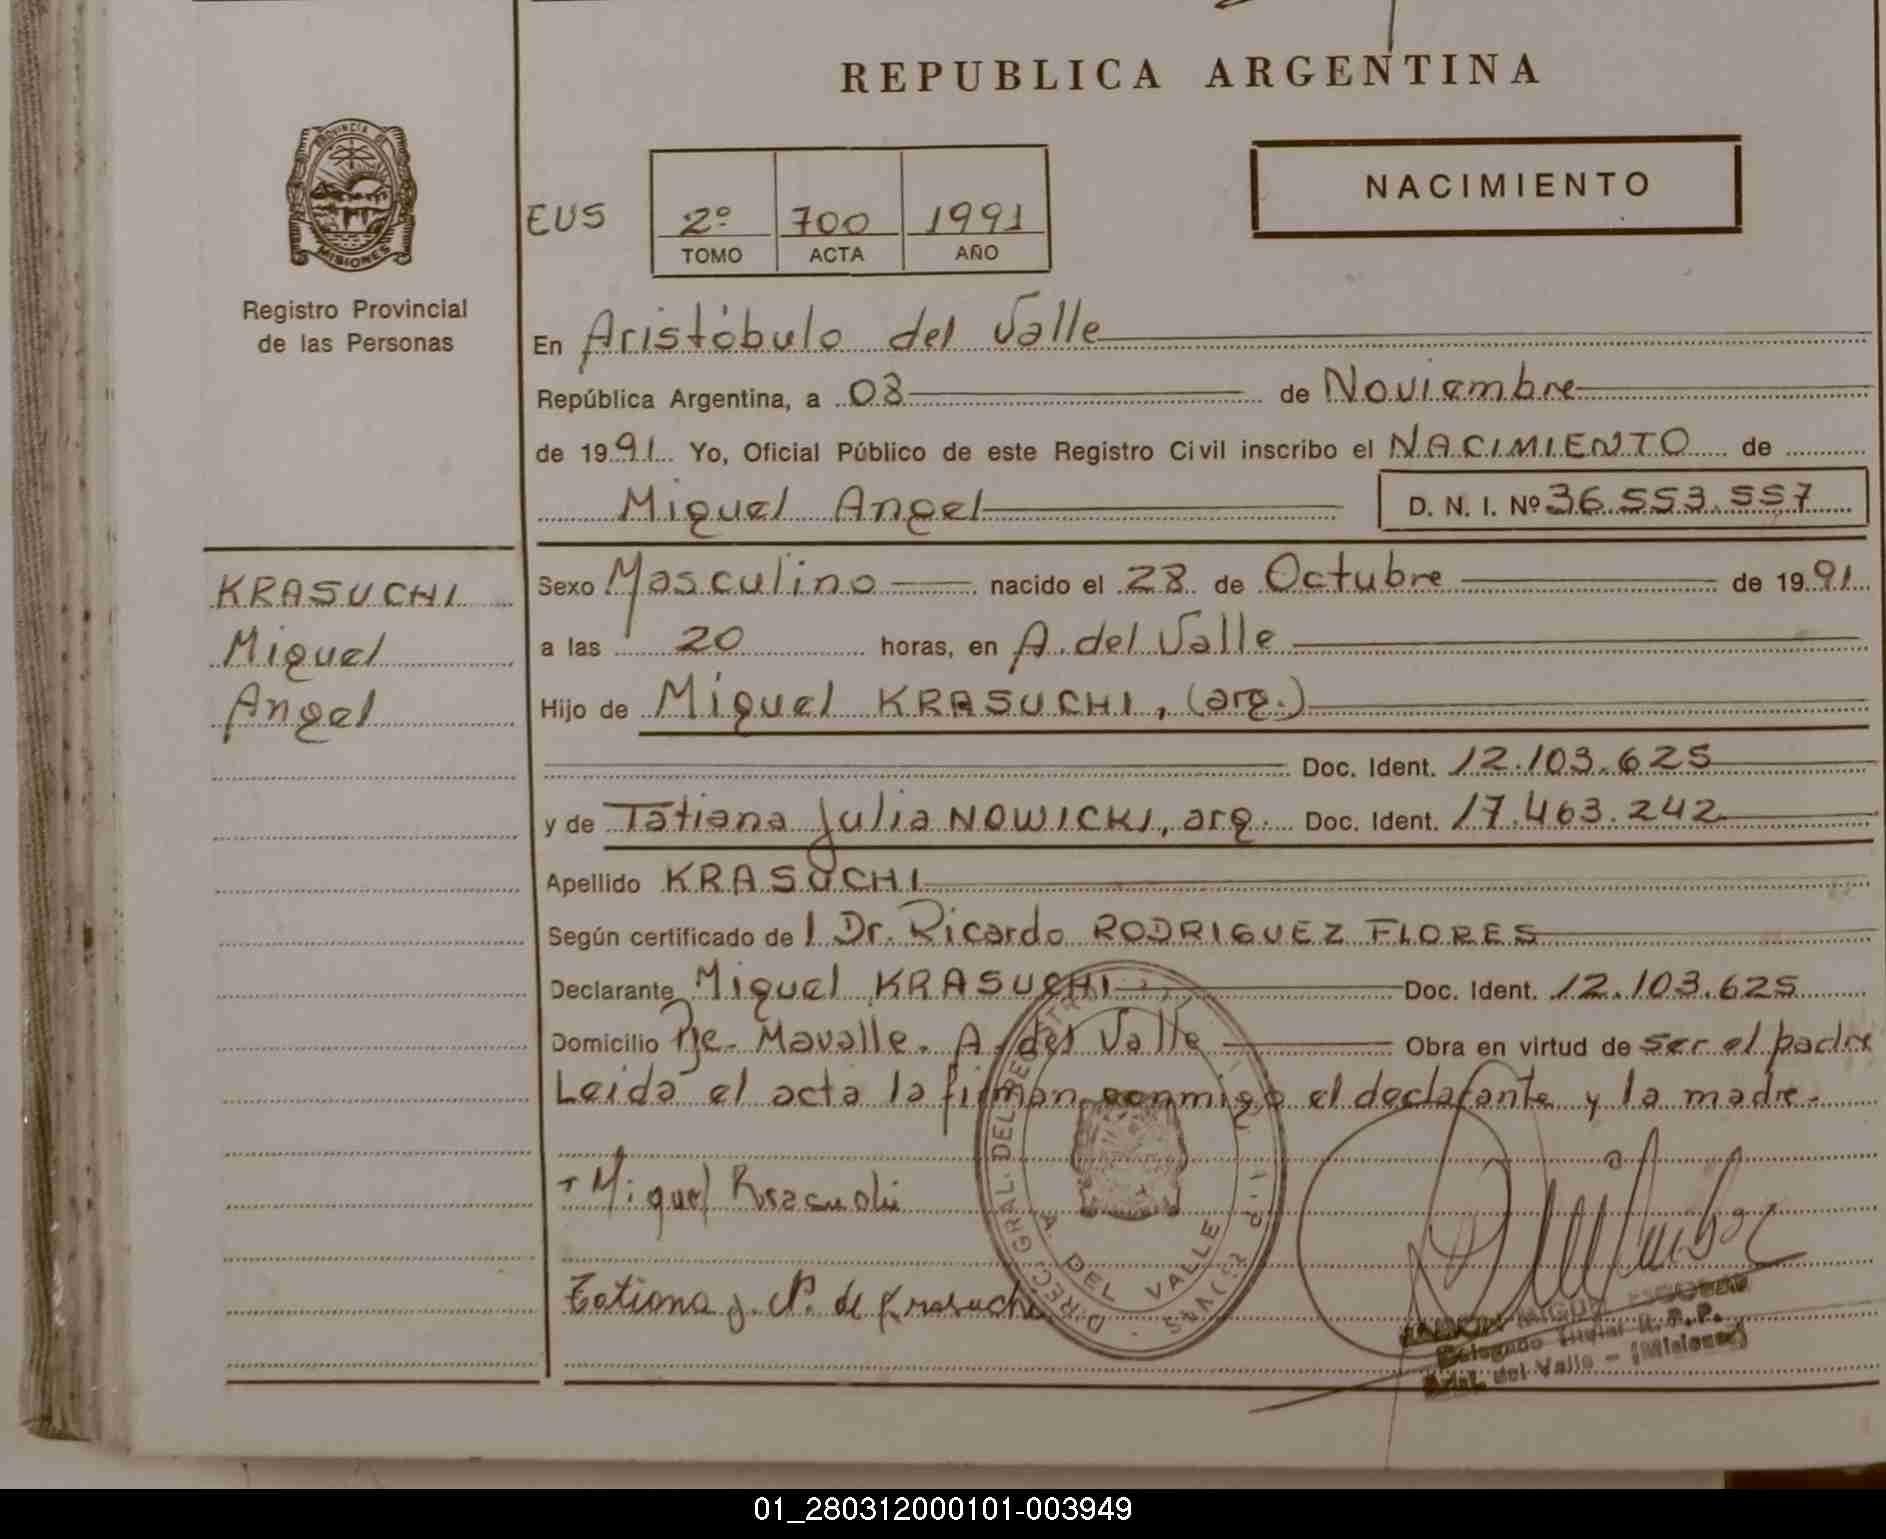 REPUBLICA ARGENTINA
PROVINCIA DE
MISIONES
Registro Provincial
de las Personas
EUS
2º 700 1991
TOMO ACTA AÑO
NACIMIENTO
En Aristóbulo del Valle
República Argentina, a 08 de Noviembre
de 1991 Yo, Oficial Público de este Registro Civil inscribo el NACIMIENTO de
Miguel Angel D. N. I. Nº 36.553.557
KRASUCHI
Miguel
Angel
Sexo Masculino nacido el 28 de Octubre de 1991
a las 20 horas, en A. del Valle
Hijo de Miguel KRASUCHI, (arg.)
Doc. Ident. 12.103.625
y de Tatiana Julia NOWICKI, arg. Doc. Ident. 17.463.242
Apellido KRASUCHI
Según certificado de l Dr. Ricardo RODRIGUEZ FLORES
Declarante Miguel KRASUCHI Doc. Ident. 12.103.625
Domicilio Pje. Mavalle. A. del Valle Obra en virtud de ser el padre
Leida el acta la firman conmigo el declarante y la madre.
Miguel Krasuchi
Tatiana J. N. de Krasuchi
A. DEL VALLE
Delegado Titular R.P.P.
Arist. del Valle - (Misiones)
01_280312000101-003949